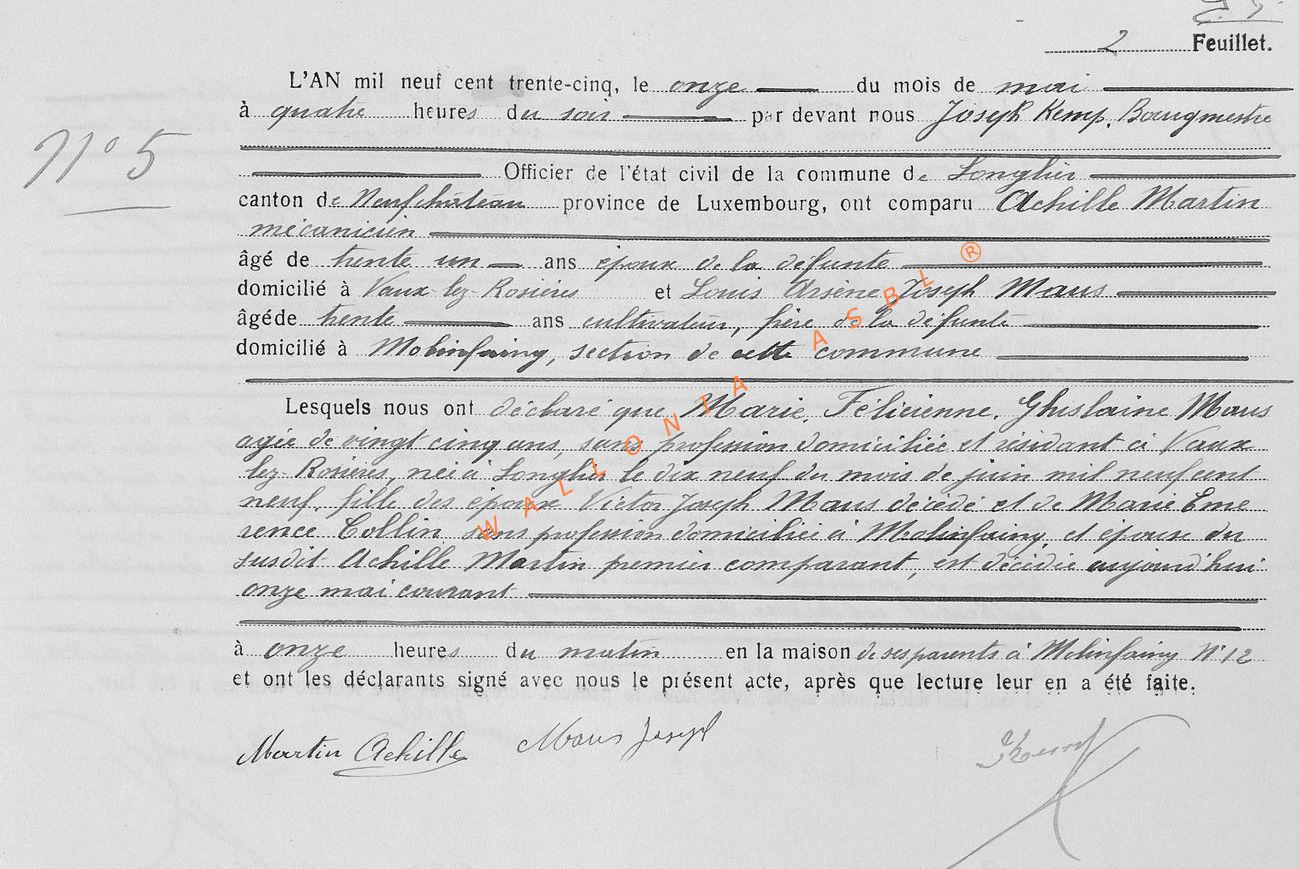 2 Feuillet.
L'AN mil neuf cent trente-cinq, le onze du mois de mai
à quatre heures du soir par devant nous Joseph Kemp, Bourgmestre
N° 5
Officier de l'état civil de la commune de Longlier
canton de Neufchâteau province de Luxembourg, ont comparu Achille Martin
mécanicien
âgé de trente un ans époux de la défunte
domicilié à Vaux lez Rosières et Louis Arsène Joseph Maus
âgé de trente ans cultivateur, frère de la défunte
domicilié à Molinfaing, section de cette commune
Lesquels nous ont déclaré que Marie, Félicienne, Ghislaine Maus
agée de vingt cinq ans, sans profession domiciliée et résidant à Vaux
lez-Rosières, née à Longlier le dix neuf du mois de juin mil neuf cent
neuf, fille des époux Victor Joseph Maus décédé et de Marie Eme
rence Collin, sans profession domiciliée à Molinfaing, et épouse du
susdit Achille Martin premier comparant, est décédée aujourd'hui
onze mai courant
à onze heures du matin en la maison de ses parents à Molinfaing N° 12
et ont les déclarants signé avec nous le présent acte, après que lecture leur en a été faite.
Martin Achille Maus Joseph JKemp
WALLONIA ASBL ®